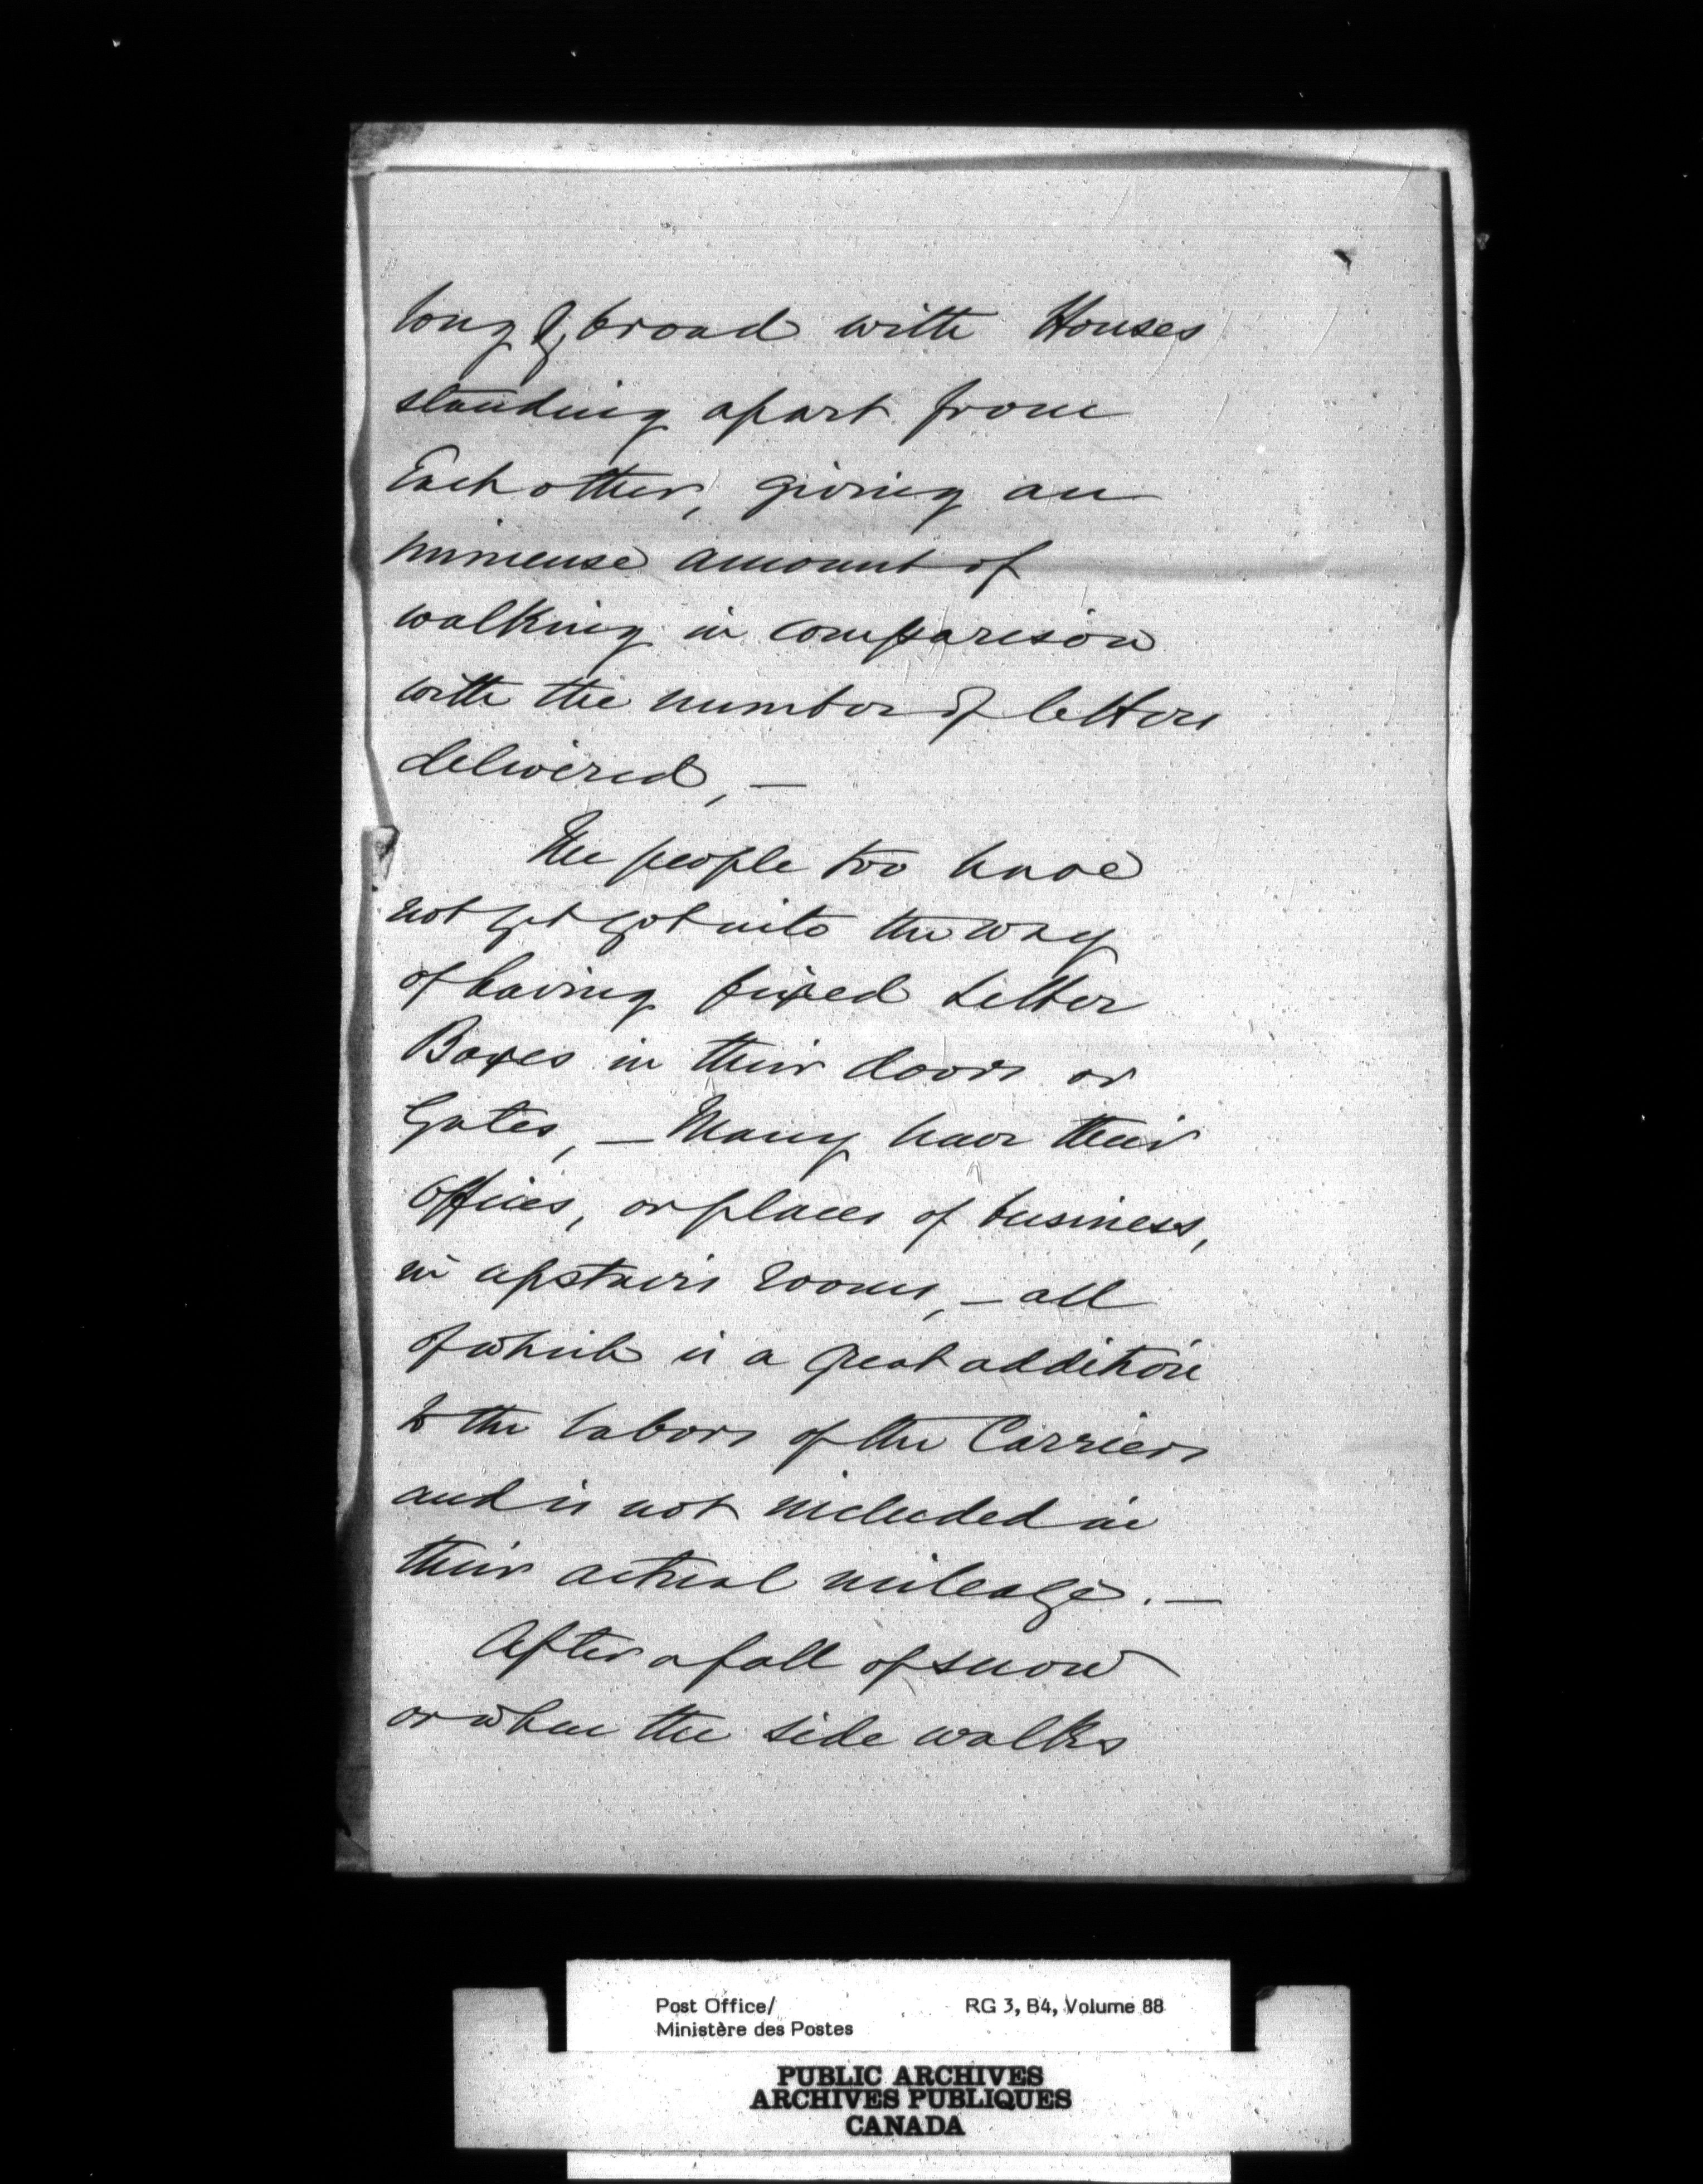 long & broad with Houses
standing apart from
Each other, giving an
immense amount of
walking in comparison
with the number of letters
delivered, —
The people too have
not yet got into the way
of having fixed Letter
Boxes in their doors or
Gates, — Many have their
offices, or places of business,
in upstairs rooms, — all
of which is a great addition
to the labors of the Carriers
and is not included in
their actual mileage. —
After a fall of snow
or when the side walks
Post Office/ RG 3, B4, Volume 88
Ministère des Postes
PUBLIC ARCHIVES
ARCHIVES PUBLIQUES
CANADA